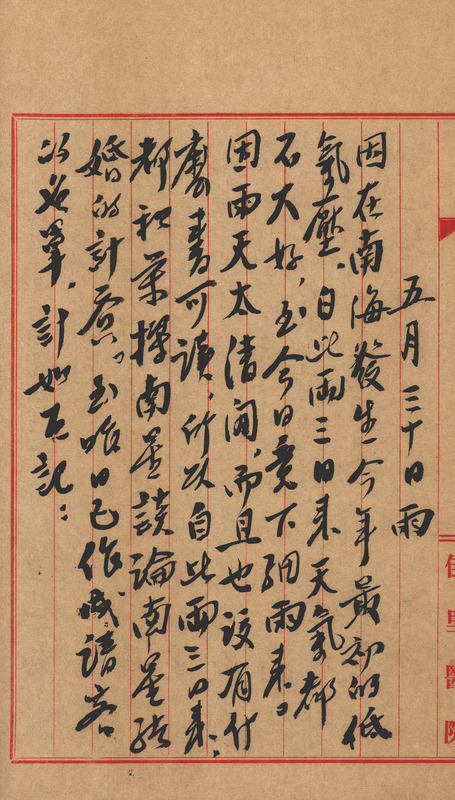 五月三十日雨
因在南海發生今年最初的低
氣壓、自此兩三日來天氣都
不大好,至今日竟下細雨來。
因雨天太清閑,而且也沒有什
麼書可讀,所以自此兩三日來,
都和南星談論南星結
婚的計畫。至昨日已作成請客
的名單,計如左記:
佳里醫院